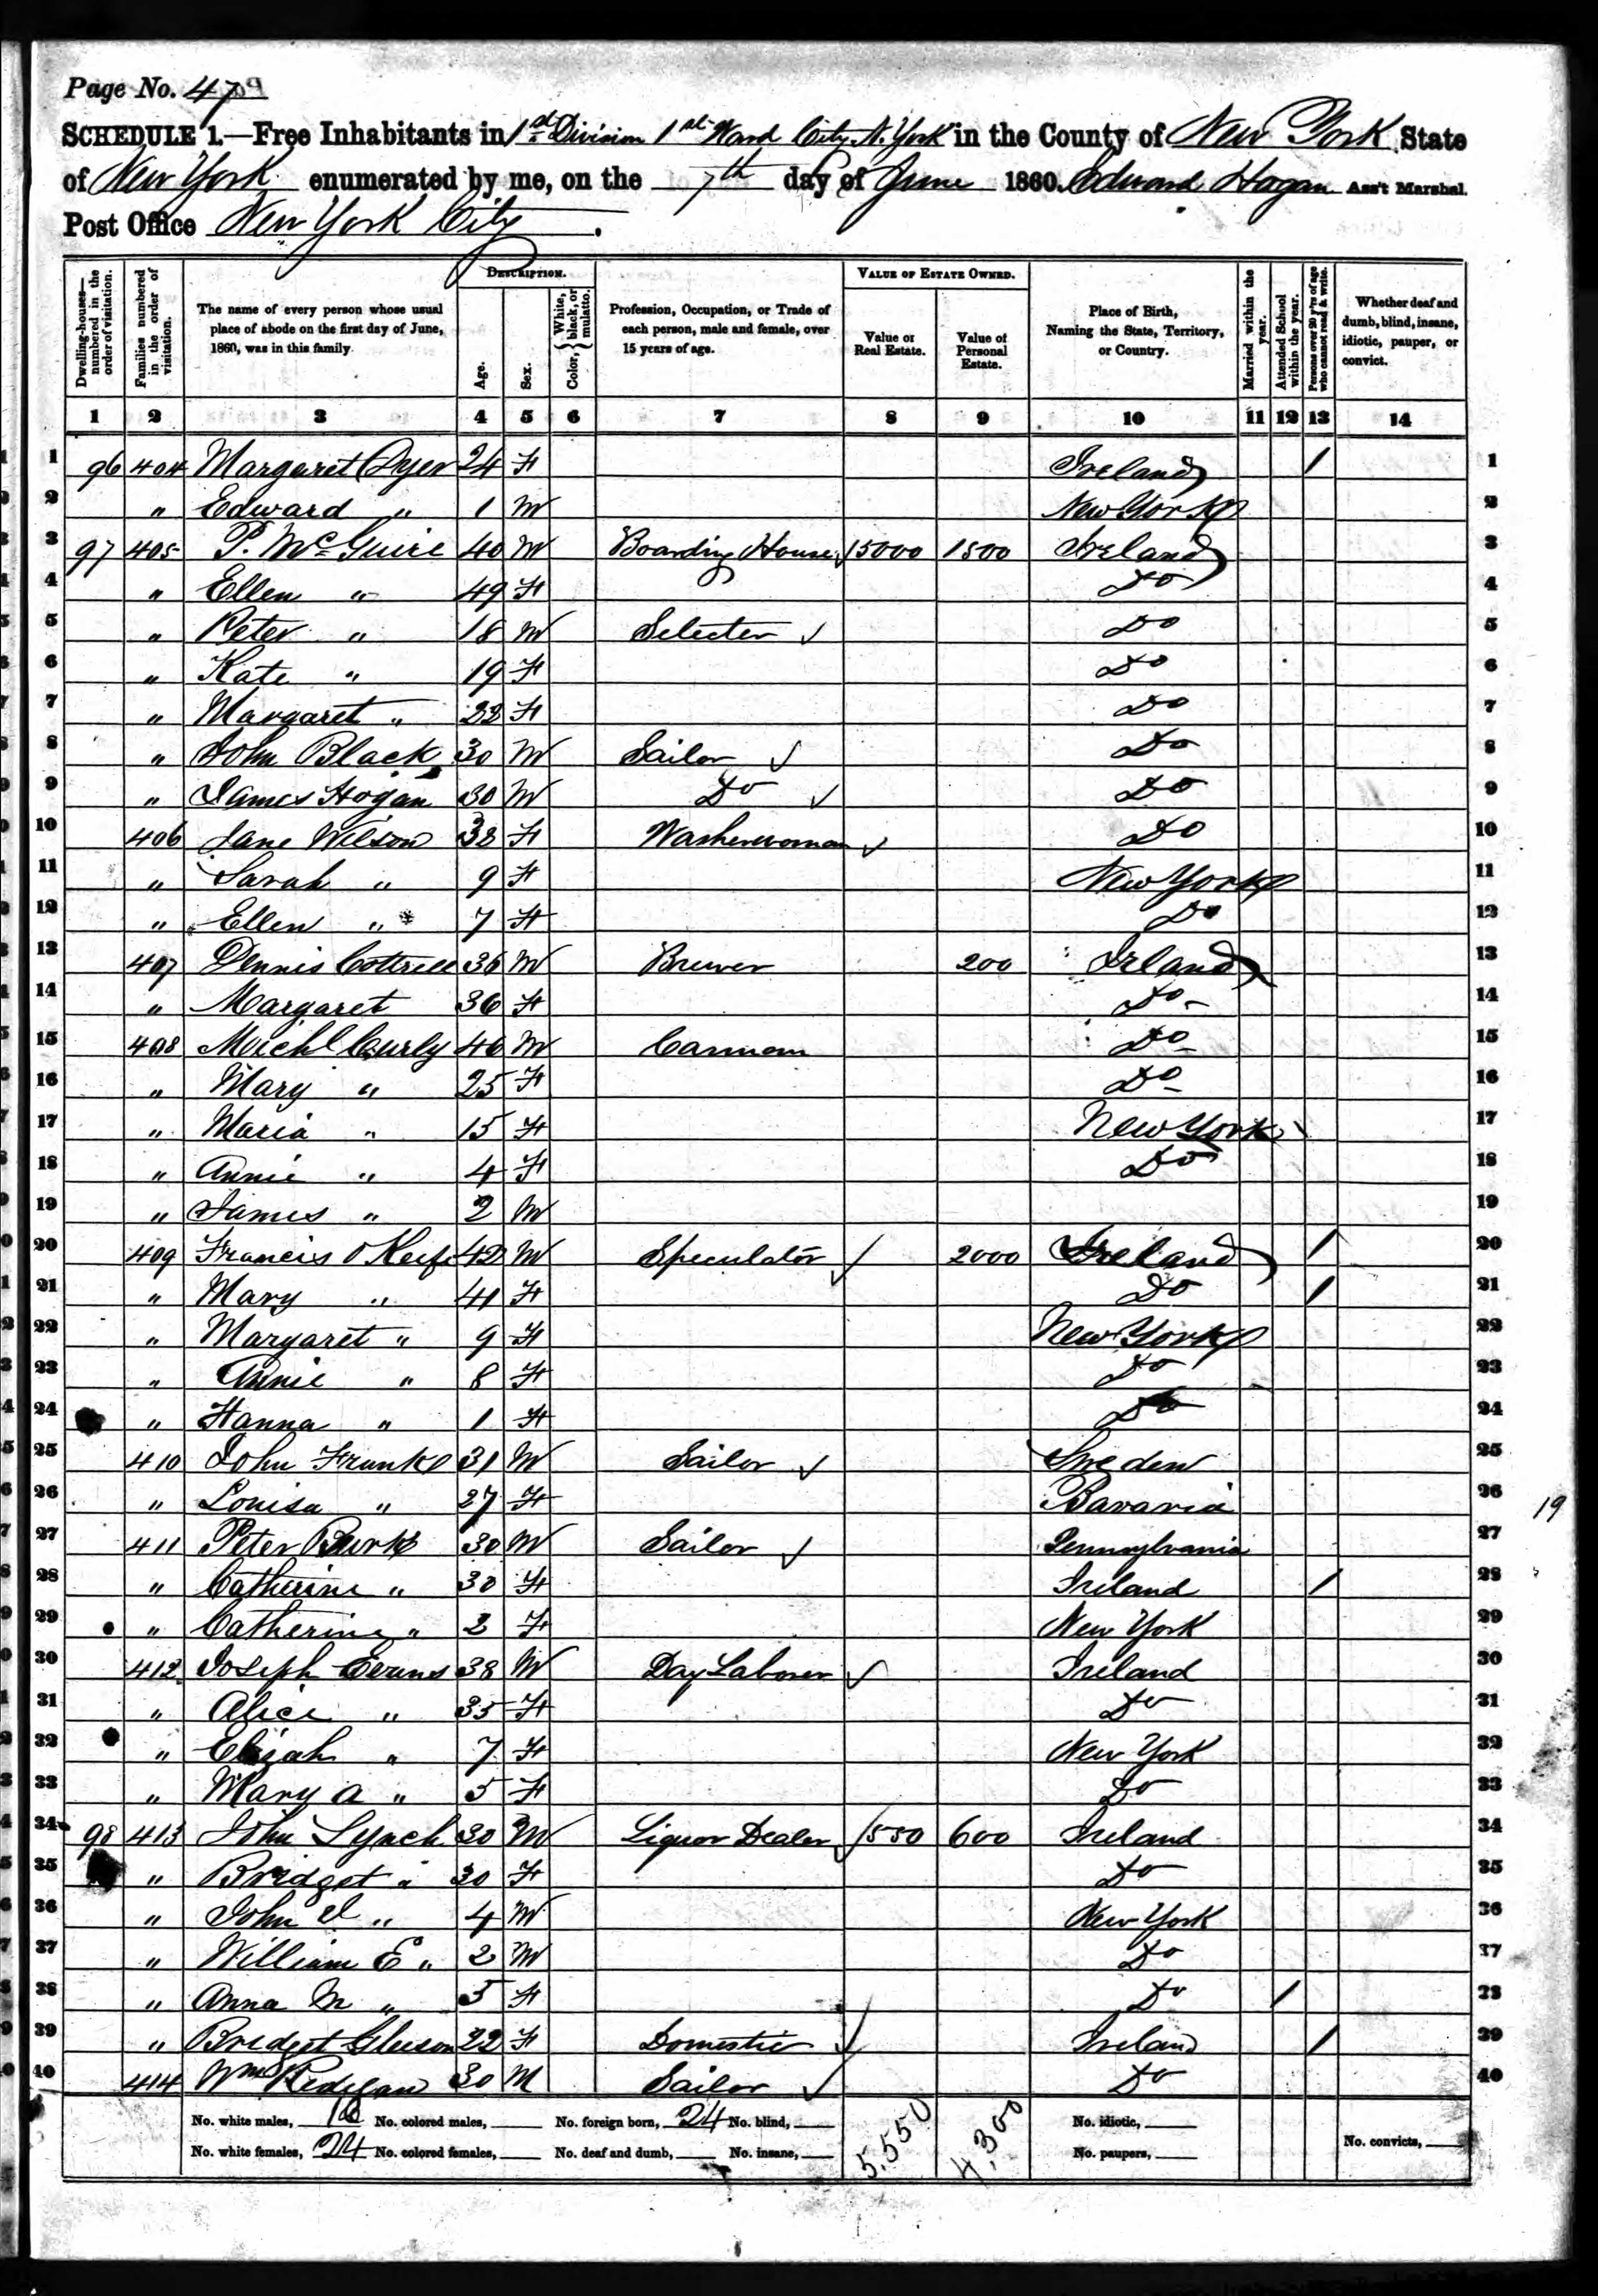 Page No. 47
SCHEDULE 1.—Free Inhabitants in 1st Division 1st Ward City N. York in the County of New York State
of New York enumerated by me, on the 7th day of June 1860. Edward Hogan Ass't Marshal.
Post Office New York City.
Dwelling-houses—numbered in the order of visitation.
Families numbered in the order of visitation.
The name of every person whose usual place of abode on the first day of June, 1860, was in this family.
DESCRIPTION.
Age.
Sex.
Color, { White, black, or mulatto.
Profession, Occupation, or Trade of each person, male and female, over 15 years of age.
VALUE OF ESTATE OWNED.
Value of Real Estate.
Value of Personal Estate.
Place of Birth, Naming the State, Territory, or Country.
Married within the year.
Attended School within the year.
Persons over 20 y'rs of age who cannot read & write.
Whether deaf and dumb, blind, insane, idiotic, pauper, or convict.
1 2 3 4 5 6 7 8 9 10 11 12 13 14
1 96 404 Margaret Dyer 24 F Ireland / 1
2 " Edward " 1 M New York 2
3 97 405 P. McGuire 40 M Boarding House 5000 1500 Ireland 3
4 " Ellen " 49 F Do 4
5 " Peter " 18 M Selecter ✓ Do 5
6 " Kate " 19 F Do 6
7 " Margaret " 22 F Do 7
8 " John Black 30 M Sailor ✓ Do 8
9 " James Hogan 30 M Do ✓ Do 9
10 406 Jane Wilson 38 F Washerwoman ✓ Do 10
11 " Sarah " 9 F New York 11
12 " Ellen " 7 F Do 12
13 407 Dennis Cottrell 36 M Brewer 200 Irland 13
14 " Margaret 36 F Do 14
15 408 Michl Curly 46 M Carman Do 15
16 " Mary " 25 F Do 16
17 " Maria " 15 F New York 17
18 " Annie " 4 F Do 18
19 " James " 2 M 19
20 409 Francis O Keife 42 M Speculator ✓ 2000 Ireland / 20
21 " Mary " 41 F Do / 21
22 " Margaret " 9 F New York 22
23 " Annie " 8 F Do 23
24 " Hanna " 1 F Do 24
25 410 John Frunke 31 M Sailor ✓ Sweden 25
26 " Louisa " 27 F Bavaria 26
19
27 411 Peter Burke 30 M Sailor ✓ Pennsylvania 27
28 " Catherine " 30 F Ireland / 28
29 " Catherine " 2 F New York 29
30 412 Joseph Evans 38 M Day Laborer ✓ Ireland 30
31 " Alice " 35 F Do 31
32 " Elizah " 7 F New York 32
33 " Mary A " 5 F Do 33
34 98 413 John Lynch 30 M Liquor Dealer ✓ 550 600 Ireland 34
35 " Bridget " 30 F Do 35
36 " John " 4 M New York 36
37 " William E " 2 M Do 37
38 " Anna M " 5 F Do / 38
39 " Bridget Gleeson 22 F Domestic ✓ Ireland / 39
40 414 Wm 30 M Sailor ✓ Do 40
No. white males, 16 No. colored males, No. foreign born, 24 No. blind, 5,550 4,300 No. idiotic,
No. white females, 24 No. colored females, No. deaf and dumb, No. insane, No. paupers, No. convicts,